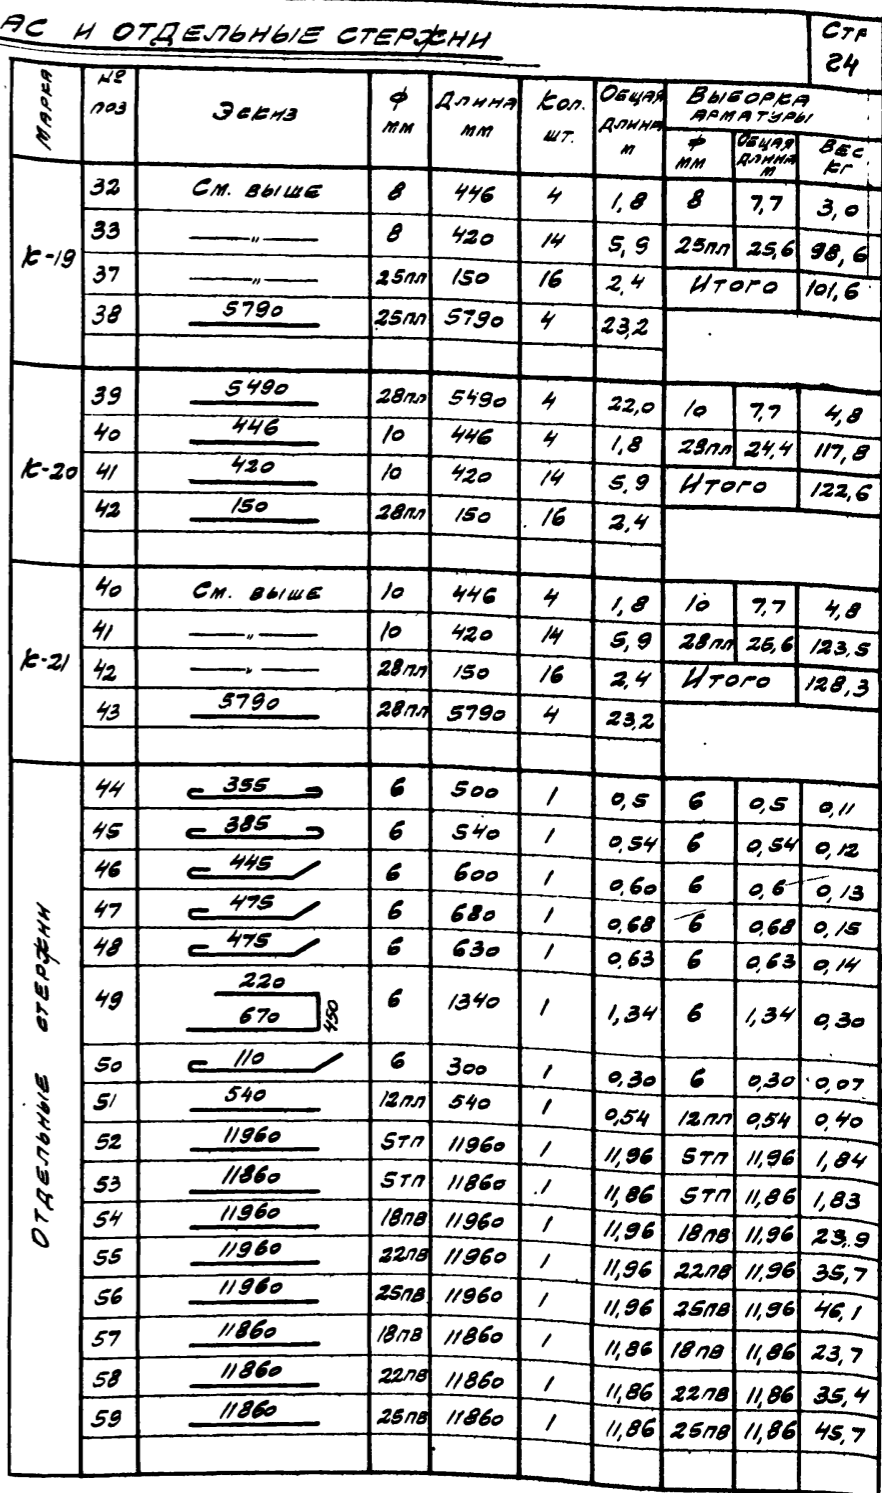 АС И ОТДЕЛЬНЫЕ СТЕРЖНИ
СТР 24
МАРКА | №№ ПОЗ | Эскиз | ф мм | Длина мм | Кол. шт. | Общая длина м | Выборка арматуры
ф мм | Общая длина м | Вес кг
К-19
32 | См. выше | 8 | 446 | 4 | 1,8 | 8 | 7,7 | 3,0
33 | —"— | 8 | 420 | 14 | 5,9 | 25пл | 25,6 | 98,6
37 | —"— | 25пл | 150 | 16 | 2,4 | Итого | 101,6
38 | 5790 | 25пл | 5790 | 4 | 23,2
К-20
39 | 5490 | 28пл | 5490 | 4 | 22,0 | 10 | 7,7 | 4,8
40 | 446 | 10 | 446 | 4 | 1,8 | 28пл | 24,4 | 117,8
41 | 420 | 10 | 420 | 14 | 5,9 | Итого | 122,6
42 | 150 | 28пл | 150 | 16 | 2,4
К-21
40 | См. выше | 10 | 446 | 4 | 1,8 | 10 | 7,7 | 4,8
41 | —"— | 10 | 420 | 14 | 5,9 | 28пл | 25,6 | 123,5
42 | —"— | 28пл | 150 | 16 | 2,4 | Итого | 128,3
43 | 5790 | 28пл | 5790 | 4 | 23,2
ОТДЕЛЬНЫЕ СТЕРЖНИ
44 | 355 | 6 | 500 | 1 | 0,5 | 6 | 0,5 | 0,11
45 | 385 | 6 | 540 | 1 | 0,54 | 6 | 0,54 | 0,12
46 | 445 | 6 | 600 | 1 | 0,60 | 6 | 0,6 | 0,13
47 | 475 | 6 | 680 | 1 | 0,68 | 6 | 0,68 | 0,15
48 | 475 | 6 | 630 | 1 | 0,63 | 6 | 0,63 | 0,14
49 | 220 670 450 | 6 | 1340 | 1 | 1,34 | 6 | 1,34 | 0,30
50 | 110 | 6 | 300 | 1 | 0,30 | 6 | 0,30 | 0,07
51 | 540 | 12пл | 540 | 1 | 0,54 | 12пл | 0,54 | 0,40
52 | 11960 | 5тп | 11960 | 1 | 11,96 | 5тп | 11,96 | 1,84
53 | 11860 | 5тп | 11860 | 1 | 11,86 | 5тп | 11,86 | 1,83
54 | 11960 | 18пв | 11960 | 1 | 11,96 | 18пв | 11,96 | 23,9
55 | 11960 | 22пв | 11960 | 1 | 11,96 | 22пв | 11,96 | 35,7
56 | 11960 | 25пв | 11960 | 1 | 11,96 | 25пв | 11,96 | 46,1
57 | 11860 | 18пв | 11860 | 1 | 11,86 | 18пв | 11,86 | 23,7
58 | 11860 | 22пв | 11860 | 1 | 11,86 | 22пв | 11,86 | 35,4
59 | 11860 | 25пв | 11860 | 1 | 11,86 | 25пв | 11,86 | 45,7